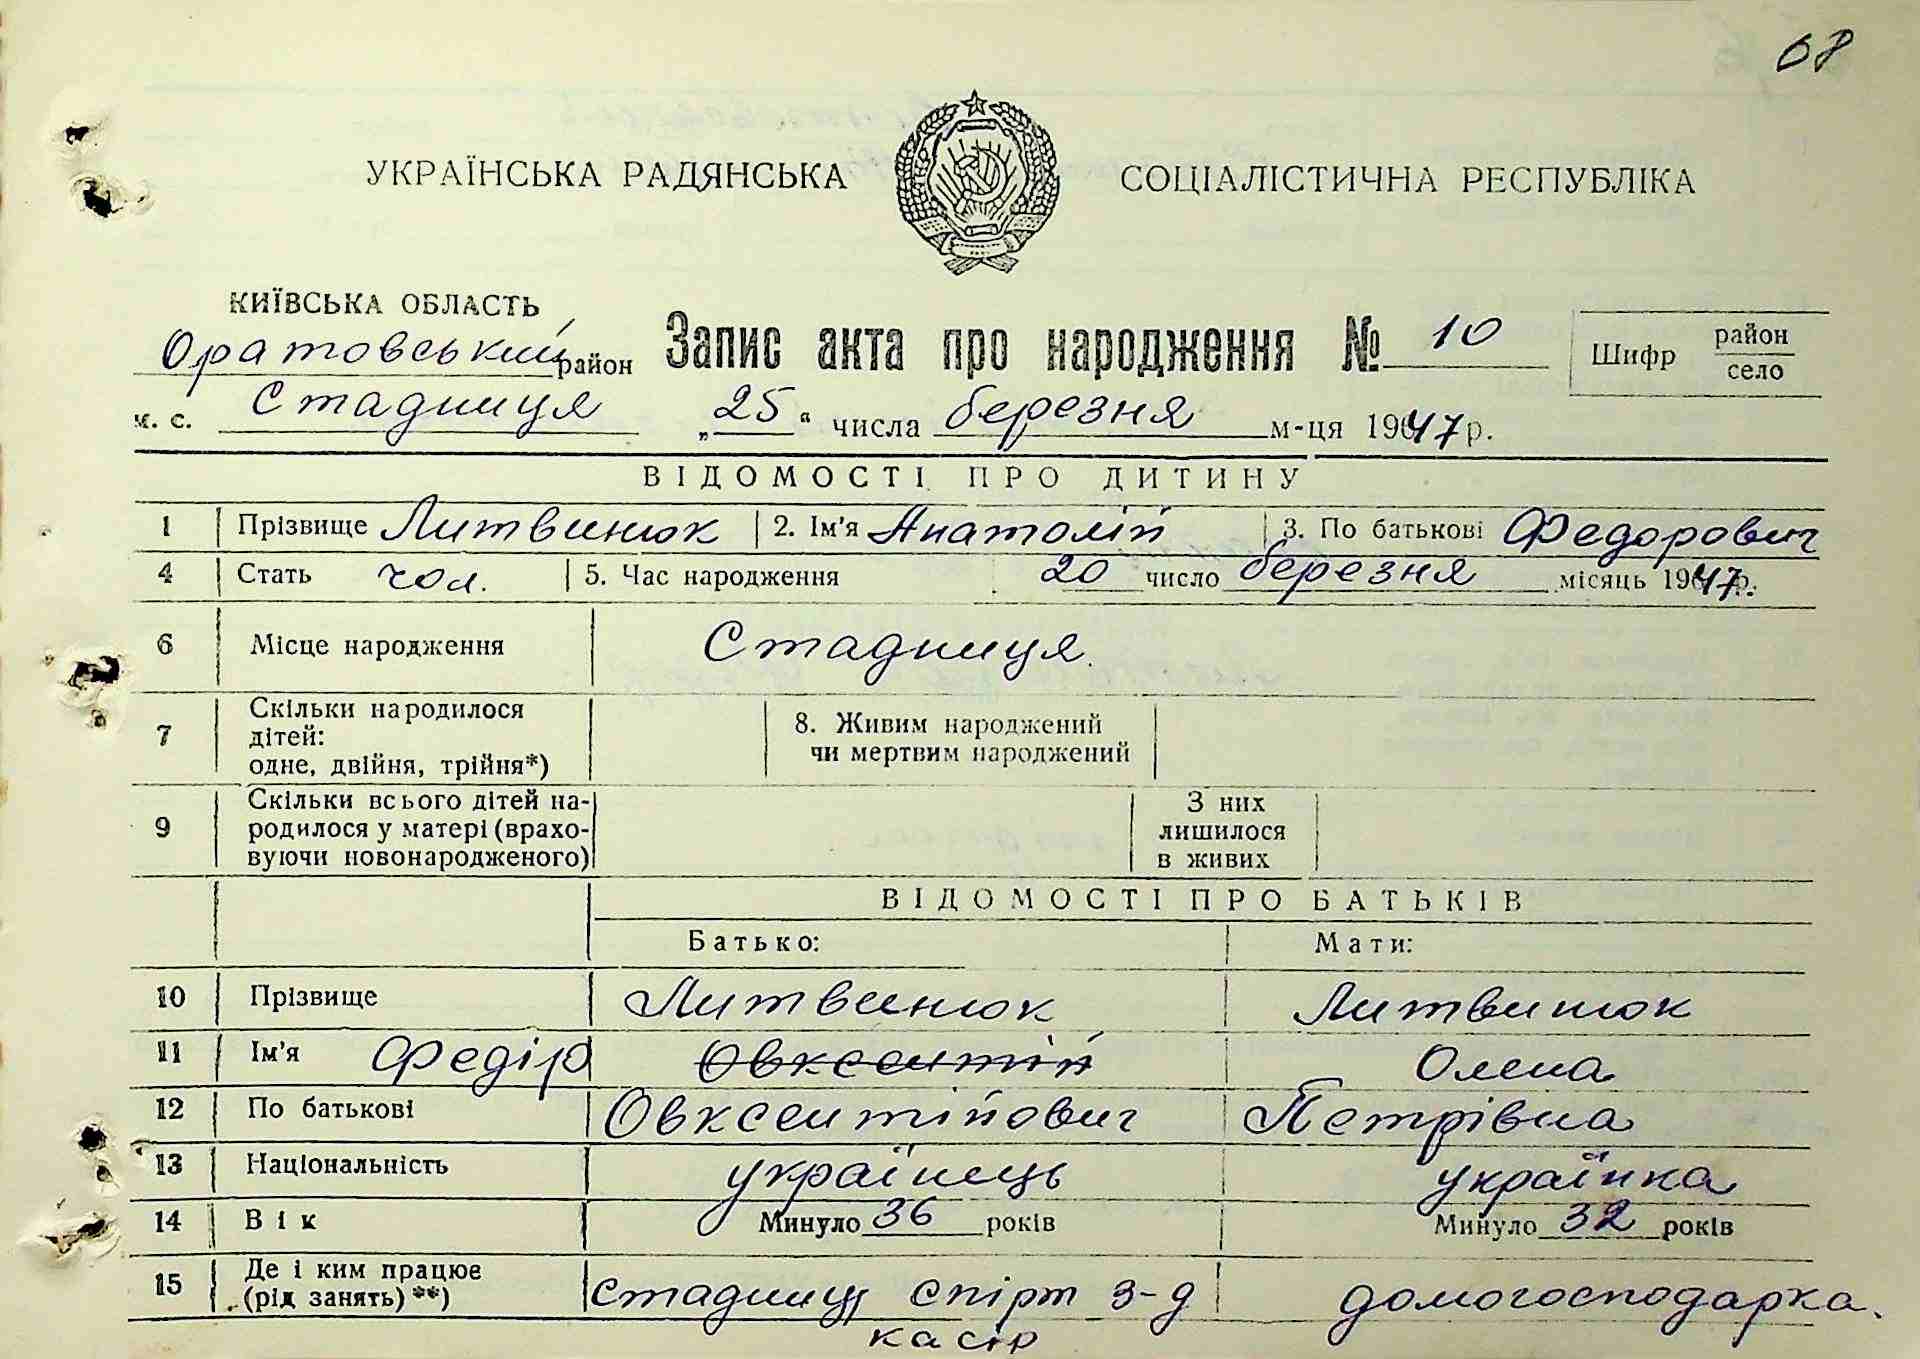 68
УКРАЇНСЬКА РАДЯНСЬКА СОЦІАЛІСТИЧНА РЕСПУБЛІКА
КИЇВСЬКА ОБЛАСТЬ
Оратовський район Запис акта про народження № 10 Шифр район село
м. с. Стадниця „25“ числа березня м-ця 1947 р.
ВІДОМОСТІ ПРО ДИТИНУ
1 Прізвище Литвинюк 2. Ім'я Анатолій 3. По батькові Федорович
4 Стать чол. 5. Час народження 20 число березня місяць 1947 р.
6 Місце народження Стадниця.
7 Скільки народилося дітей: одне, двійня, трійня*) 8. Живим народжений чи мертвим народжений
9 Скільки всього дітей народилося у матері (враховуючи новонародженого) З них лишилося в живих
ВІДОМОСТІ ПРО БАТЬКІВ
Батько: Мати:
10 Прізвище Литвинюк Литвинюк
11 Ім'я Федір Овксентій Олена
12 По батькові Овксентійович Петрівна
13 Національність українець українка
14 Вік Минуло 36 років Минуло 32 років
15 Де і ким працює (рід занять) **) Стадниц спірт з-д домогосподарка.
касір